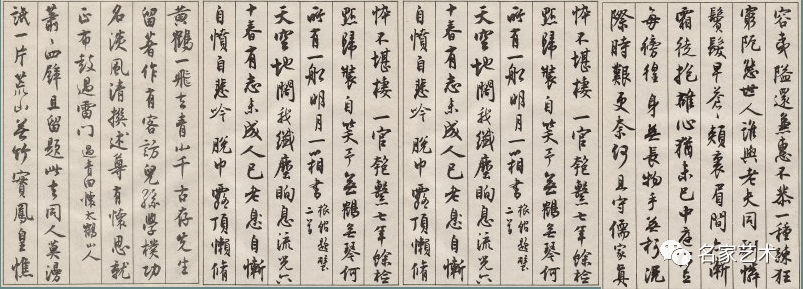 容夷隘還無惠不恭一種疎狂
窮阮愁世人誰與老夫同憐
鬢髮早蒼頰裏眉間漸
霜從抱雄心猶未已中庭立
每徬徨身無長物手無朽況
際時艱更奈何且守儒家真
悴不堪棲一官匏繫七年餘檢
點歸裝自笑予無鶴無琴何
所有一船明月一箱書 旅館題壁二首
天空地闊我纖塵眴息流光六
十春有志未成人已老息自慚
自憤自悲吟脫巾露頂懶脩
悴不堪棲一官匏繫七年餘檢
點歸裝自笑予無鶴無琴何
所有一船明月一箱書 旅館題壁二首
天空地闊我纖塵眴息流光六
十春有志未成人已老息自慚
自憤自悲吟脫巾露頂懶脩
黃鶴一飛去青山千古存先生
留著作有客訪兒孫學樸功
名淡風清撰述尊有懷思就
正布鼓過雷門 過青田懷太鶴山人
蕭々四且留題此去同人莫漫
詆一片荒山苦竹實鳳皇憔
名家艺术